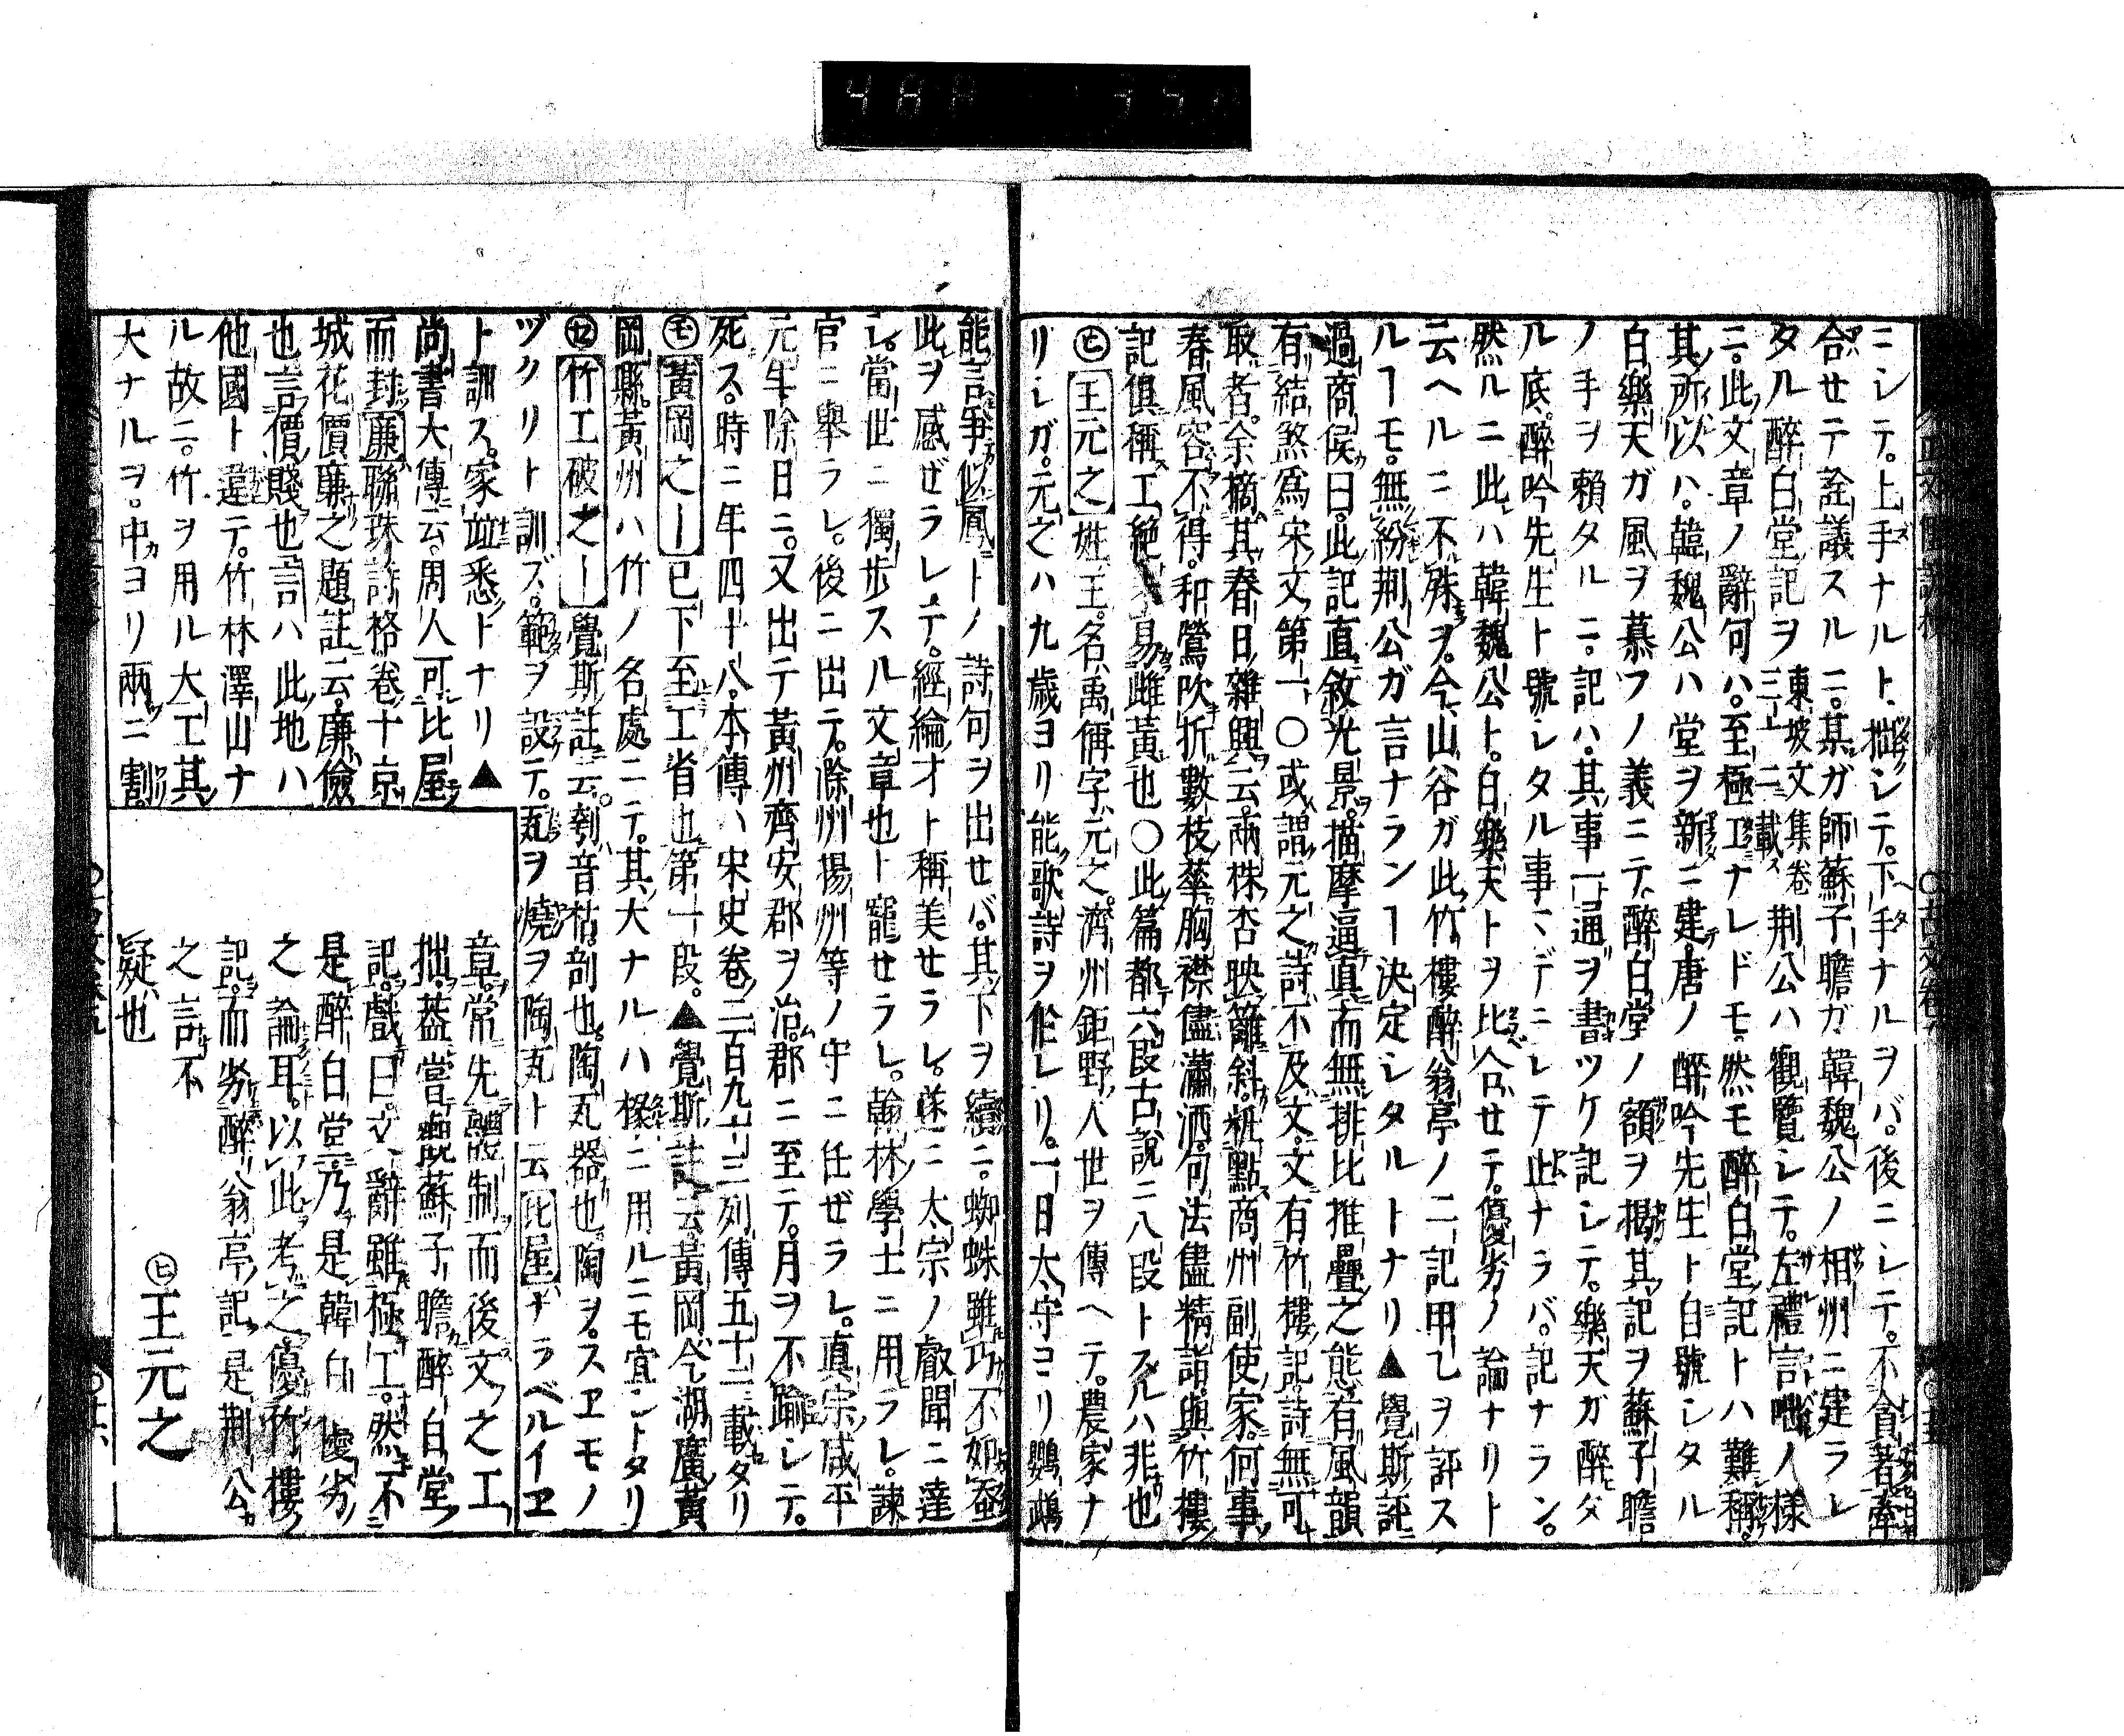 ニシテ。上手ナルト、拙シテ。下手ナルヲバ。後ニシテ。不貪著牽
合セテ詮議スルニ。某ガ師蘇子瞻ガ韓魏公ノ相州ニ建ラレ
タル醉白堂記ヲ東坡文集卷三十二載荆公ハ觀覽シテ。左禮言ノ様
ニ。此文章ノ辭句ハ。至極工ナレドモ。然モ醉白堂記トハ難稱。
其所以ハ。韓魏公ハ堂ヲ新ニ建。唐ノ醉吟先生ト自號シタル
白樂天ガ風ヲ慕フノ義ニテ。醉白堂ノ額ヲ揭其記ヲ蘇子瞻
ノ手ヲ賴タルニ。記ハ。其事一通ヲ書ツケ記シテ。樂天ガ醉タ
ル底。醉吟先生ト號シタル事マデニシテ止ナラバ。記ナラン。
然ルニ此ハ韓魏公ト。白樂天トヲ比合セテ。優劣ノ論ナリト
云ヘルニ不殊ヲ。今山谷ガ此竹樓醉翁亭ノ二記甲乙ヲ評ス
ルーモ。無紛荆公ガ言ナランー決定シタルトナリ▲覺斯註
過商侯曰。此記直敘光景。描摩逼真而無排比推疊之態有風韻
有結煞爲宋文第一。〇或謂元之詩不及文。文有竹樓記。詩無可
取者。余摘其春日雜興云。兩株杏映籬斜。粧點商州副使家。何事
春風容不得。和鶯吹折數枝蕐。胸襟儘瀟洒。句法儘精詣。與竹樓
記俱稱工絕易雌黃也〇此篇都六段古說ニ八段トスルハ非也
㋪王元之姓王。名禹偁字元之。濟州鉅野人世ヲ傳ヘテ。農家ナ
リシガ。元之ハ九歲ヨリ能歌詩ヲ作レリ。一日太守ヨリ鸚鵡
能言爭似鳳トノ詩句ヲ出セバ。其下ヲ續ニ。蜘蛛雖巧不如蚕
此ヲ感ゼラレテ。經綸才ト稱美セラレ。ニ太宗ノ叡聞ニ達
シ。當世ニ獨步スル文章也ト寵セラレ。翰林學士ニ用ラレ。諫
官ニ舉ラレ。後ニ出テ。滁州揚州等ノ守ニ任ゼラレ。真宗咸平
元年除日ニ。又出テ黃州齊安郡ヲ治。郡ニ至テ。月ヲ不踰シテ。
死ス。時ニ年四十八。本傳ハ宋史卷二百九十三列傳五十二載タリ
㋲黃岡之ー已下至工省也第一段。▲覺斯註云黃岡今湖廣黃
岡縣。黃州ハ竹ノ名處ニテ。其大ナルハ椽ニ用ルニモ宜シトタリ
㋝竹工破之ー覺斯註云。刳音枯剖也。陶瓦器也。陶ヲ。スヱモノ
ヅクリト訓ズ。範ヲ設テ。瓦ヲ燒ヲ陶瓦ト云比屋ナラベルイヱ
ト訓ス。家竝悉トナリ▲
尚書大傳云。周人可比屋
而封廉聯珠詩格卷十京
城花價廉之題註云。廉儉
也言價賤也言ハ此地ハ
他國ト違テ。竹林澤山ナ
ル故ニ。竹ヲ用ル大工其
大ナルヲ。中ヨリ兩ニ割
章。常先體制而後文之工
拙。葢嘗觀蘇子瞻醉白堂
記。戲曰。文辭雖極工。然不
是醉白堂乃是韓白優劣
之論耳。以此考之優竹樓
記。而劣醉翁亭記。是荆公
之言不
疑也
㋪王元之